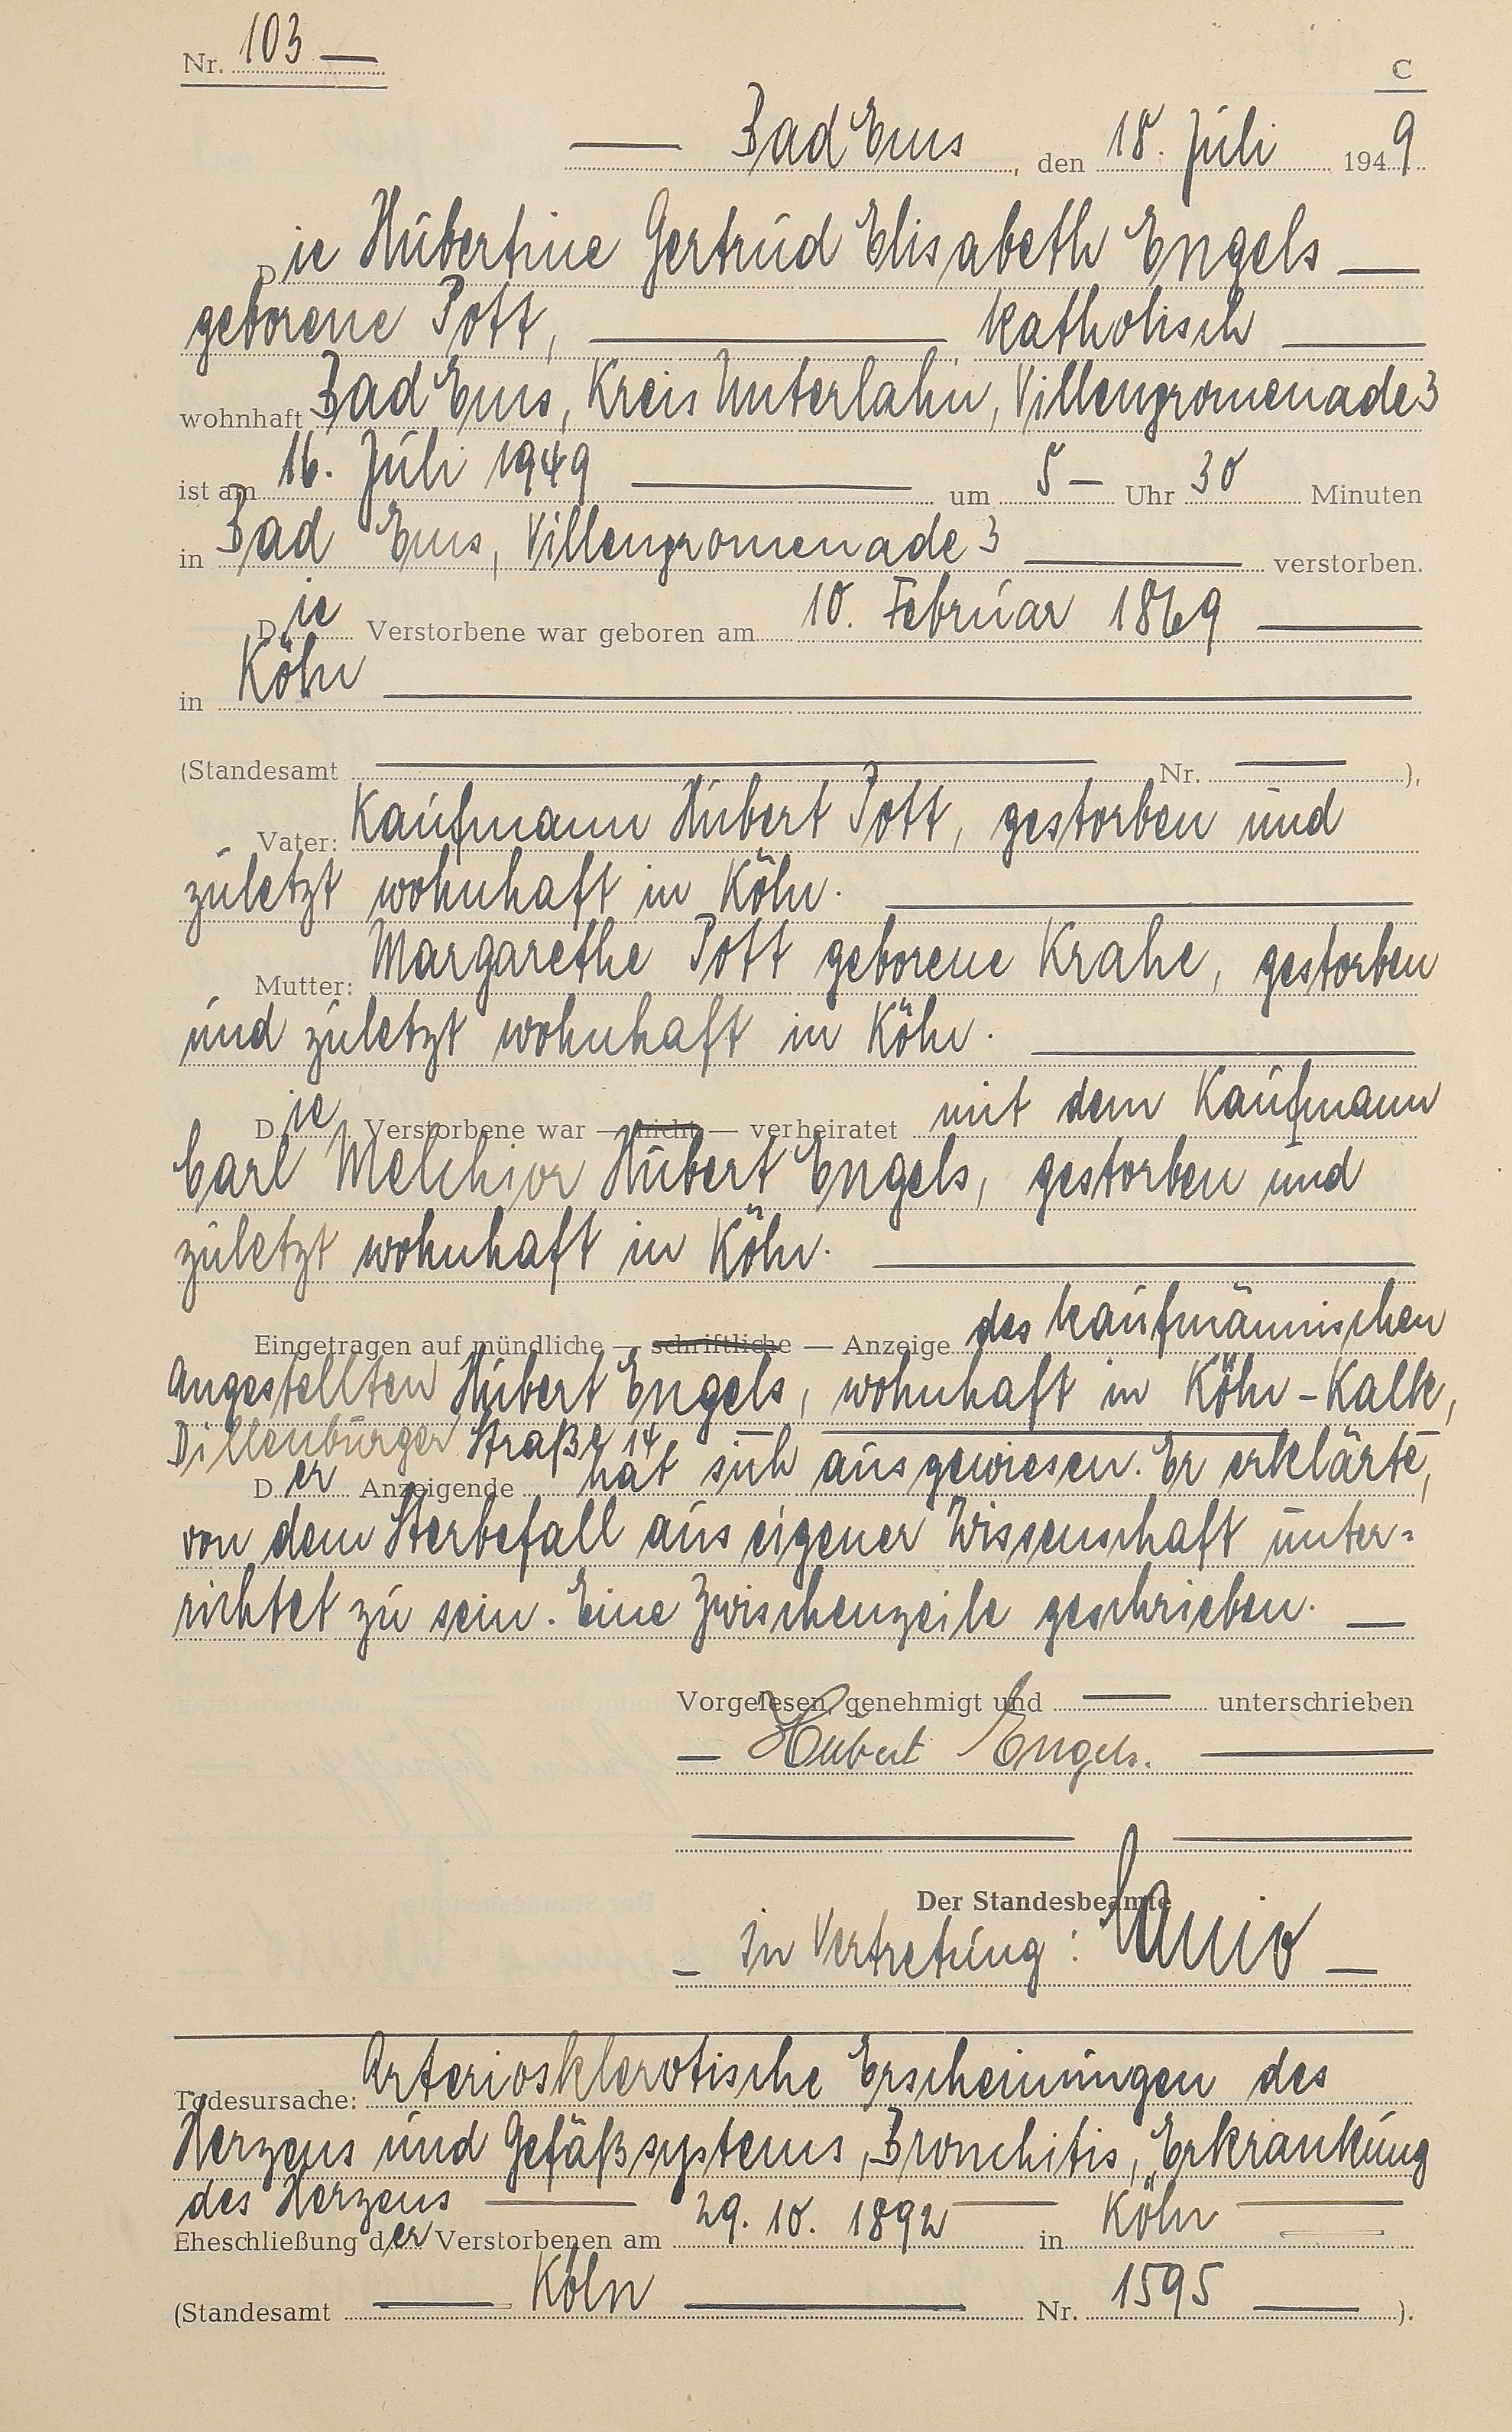 Nr. 103 —
C
— Bad Ems, den 18. Juli 1949
Die Hubertine Gertrud Elisabeth Engels —
geborene Pott, — katholisch —
wohnhaft Bad Ems, Kreis Unterlahn, Villenpromenade 3
ist am 16. Juli 1949 — um 5 — Uhr 30 Minuten
in Bad Ems, Villenpromenade 3 — verstorben.
Die Verstorbene war geboren am 10. Februar 1869 —
in Köln —
(Standesamt — Nr. — ),
Vater: Kaufmann Hubert Pott, gestorben und
zuletzt wohnhaft in Köln. —
Mutter: Margarethe Pott geborene Krahe, gestorben
und zuletzt wohnhaft in Köln. —
Die Verstorbene war — nicht — verheiratet mit dem Kaufmann
Carl Melchior Hubert Engels, gestorben und
zuletzt wohnhaft in Köln. —
Eingetragen auf mündliche — schriftliche — Anzeige des kaufmännischen
Angestellten Hubert Engels, wohnhaft in Köln-Kalk,
Dillenburger Straße 14. —
Der Anzeigende hat sich ausgewiesen. Er erklärte,
von dem Sterbefall aus eigener Wissenschaft unter-
richtet zu sein. Eine Zwischenzeile geschrieben. —
Vorgelesen, genehmigt und — unterschrieben
— Hubert Engels. —
Der Standesbeamte
— In Vertretung: —
Todesursache: Arteriosklerotische Erscheinungen des
Herzens und Gefäßsystems, Bronchitis, Erkrankung
des Herzens —
Eheschließung der Verstorbenen am 29. 10. 1892 — in Köln —
(Standesamt — Köln — Nr. 1595 — ).